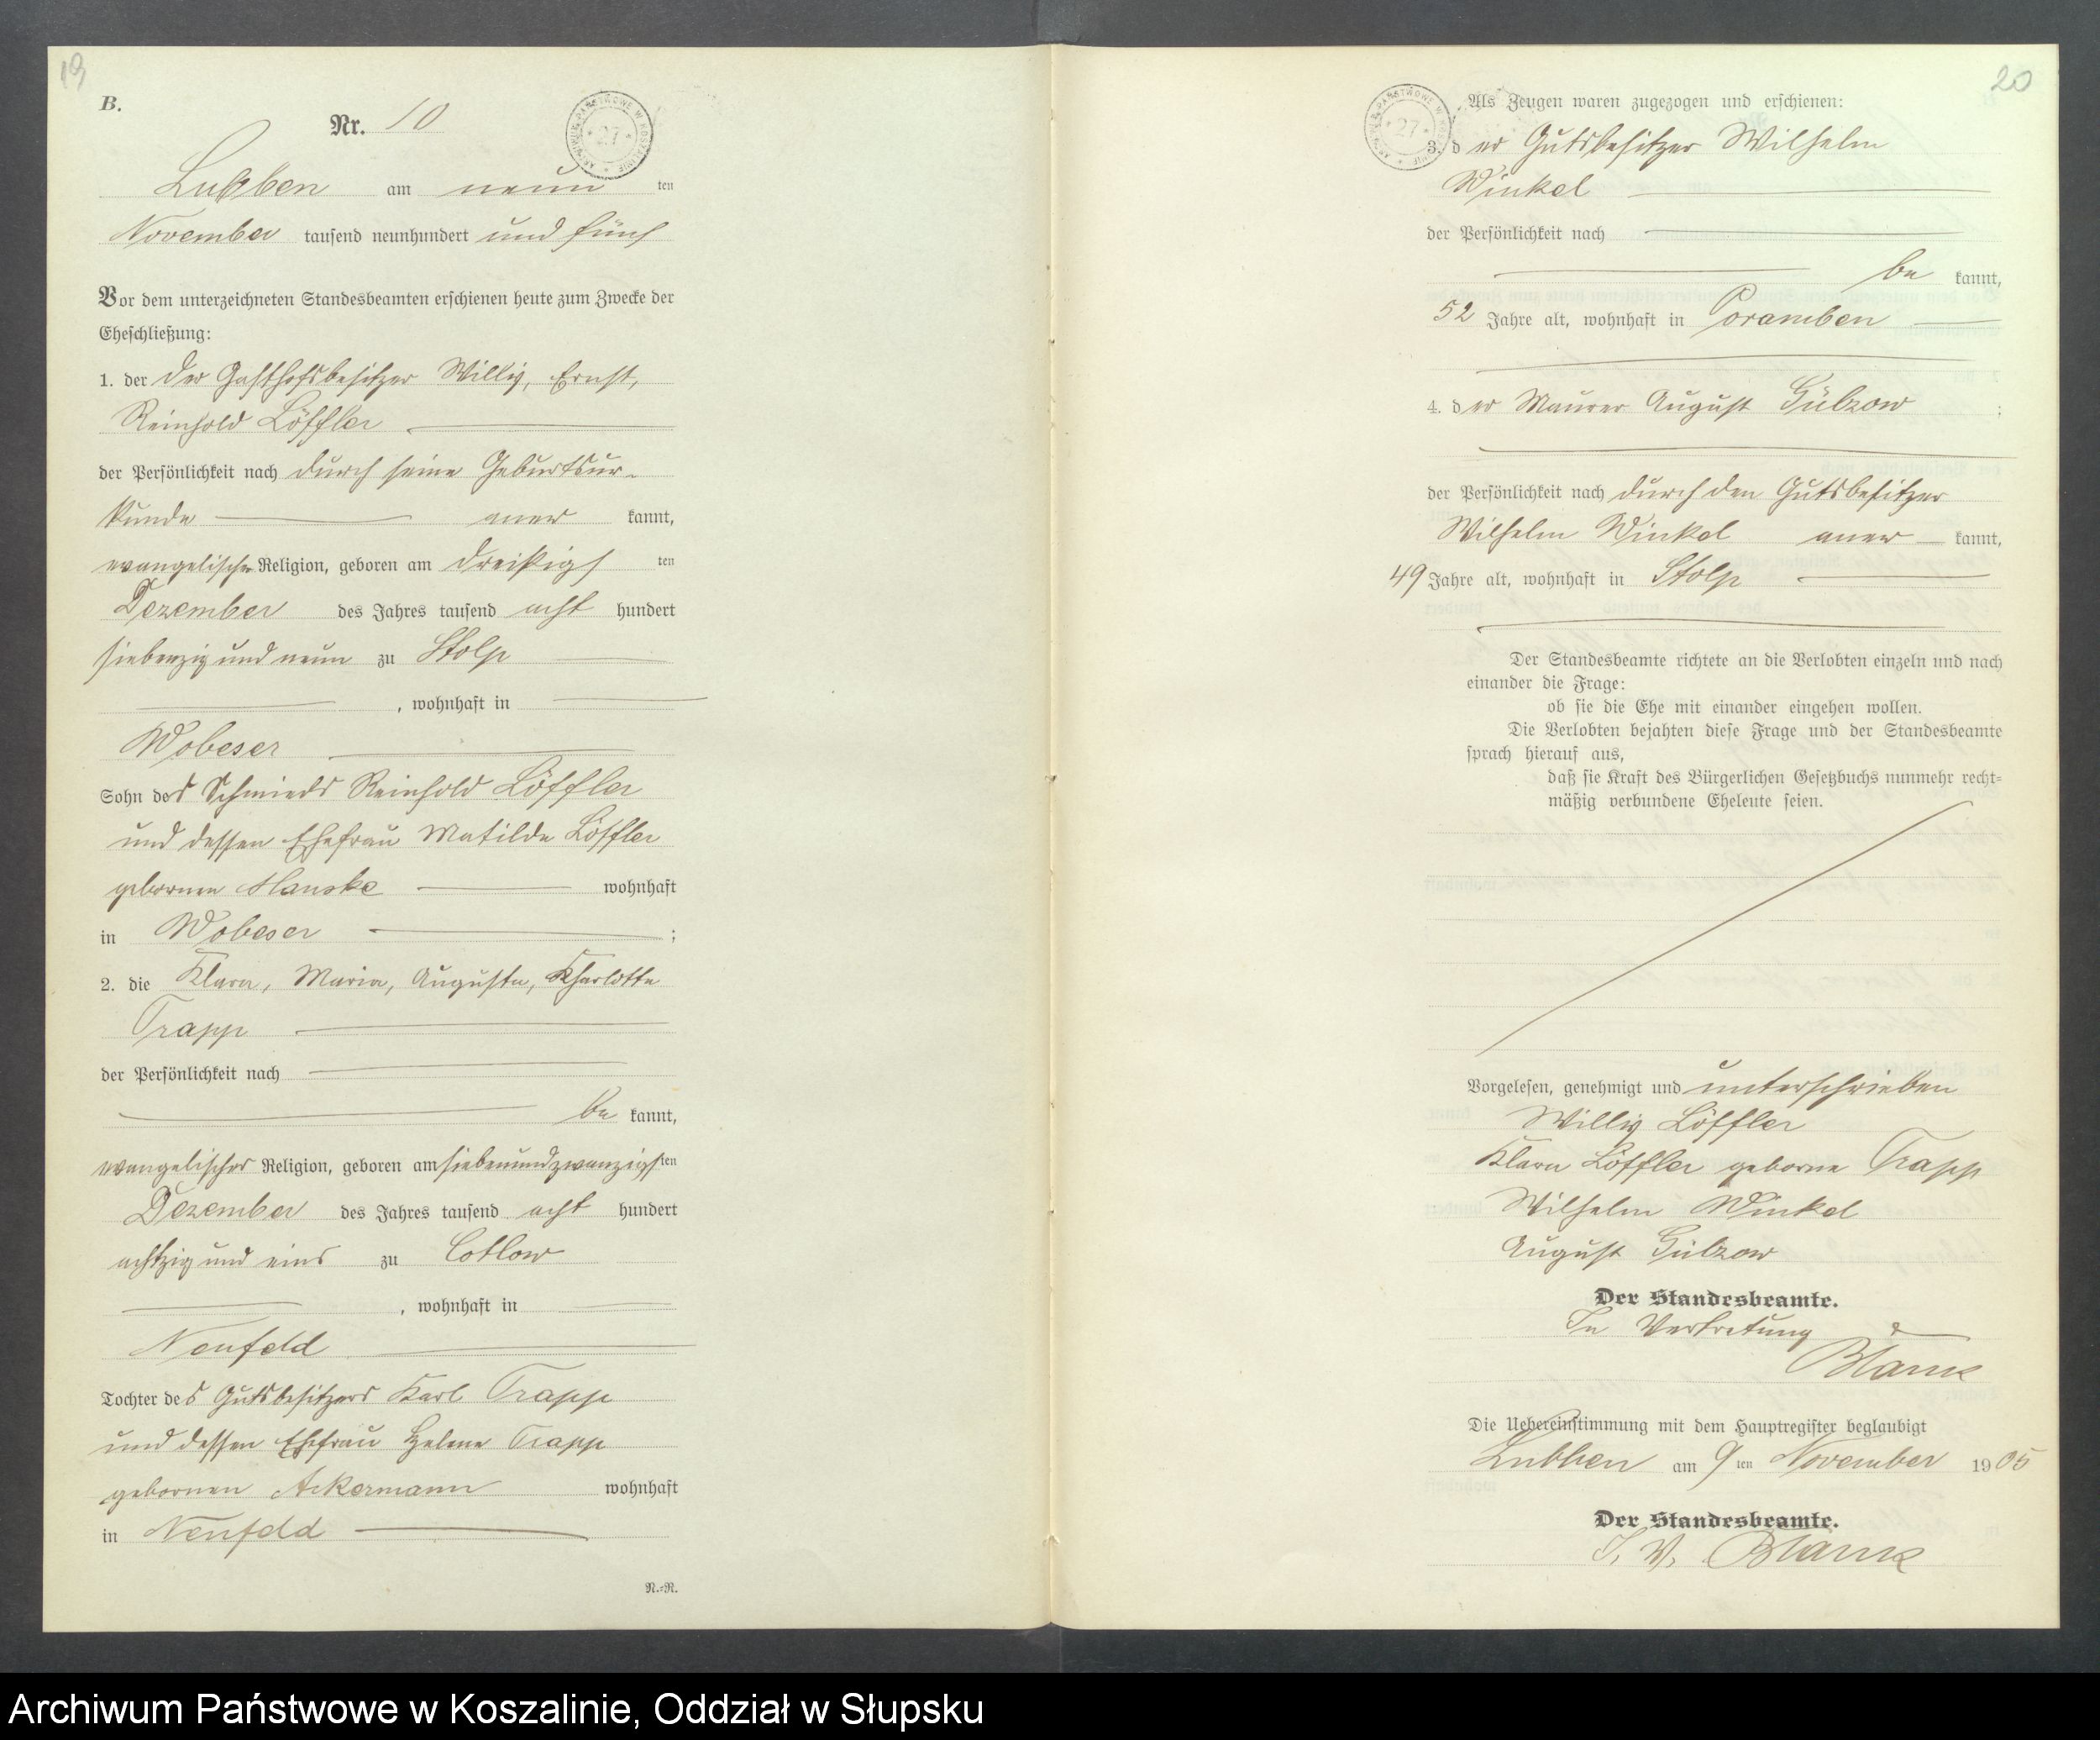 19
B.
Nr. 10
Lubben am neun ten
November tausend neunhundert und fünf
Vor dem unterzeichneten Standesbeamten erschienen heute zum Zwecke der
Eheschließung:
1. der der Gasthofsbesitzer Willy, Ernst,
Reinhold Löffler
der Persönlichkeit nach durch seine Geburtsur-
kunde aner kannt,
evangelischer Religion, geboren am dreißigs ten
Dezember des Jahres tausend acht hundert
siebenzig und neun zu Stolp
, wohnhaft in
Wobeser
Sohn des Schmieds Reinhold Löffler
und dessen Ehefrau Matilde Löffler
gebornen Hanske wohnhaft
in Wobeser ;
2. die Klara, Maria, Augusta, Kharlotte
Trapp
der Persönlichkeit nach
be kannt,
evangelischer Religion, geboren am siebenundzwanzigsten
Dezember des Jahres tausend acht hundert
achtzig und eins zu Cotlow
, wohnhaft in
Neufeld
Tochter des Gutsbesitzers Karl Trapp
und dessen Ehefrau Helene Trapp
gebornen Ackermann wohnhaft
in Neufeld
N.=N.
20
Als Zeugen waren zugezogen und erschienen:
3. der Gutsbesitzer Wilhelm
Winkel
der Persönlichkeit nach
be kannt,
52 Jahre alt, wohnhaft in Poramben
4. der Maurer August Gülzow ;
der Persönlichkeit nach durch den Gutsbesitzer
Wilhelm Winkel aner kannt,
49 Jahre alt, wohnhaft in Stolp
Der Standesbeamte richtete an die Verlobten einzeln und nach
einander die Frage:
ob sie die Ehe mit einander eingehen wollen.
Die Verlobten bejahten diese Frage und der Standesbeamte
sprach hierauf aus,
daß sie Kraft des Bürgerlichen Gesetzbuchs nunmehr recht=
mäßig verbundene Eheleute seien.
Vorgelesen, genehmigt und unterschrieben
Willy Löffler
Klara Löffler geborne Trapp
Wilhelm Winkel
August Gülzow
Der Standesbeamte.
In Vertretung
Blank
Die Uebereinstimmung mit dem Hauptregister beglaubigt
Lubben am 9ten November 1905
Der Standesbeamte.
I. V. Blank
Archiwum Państwowe w Koszalinie, Oddział w Słupsku